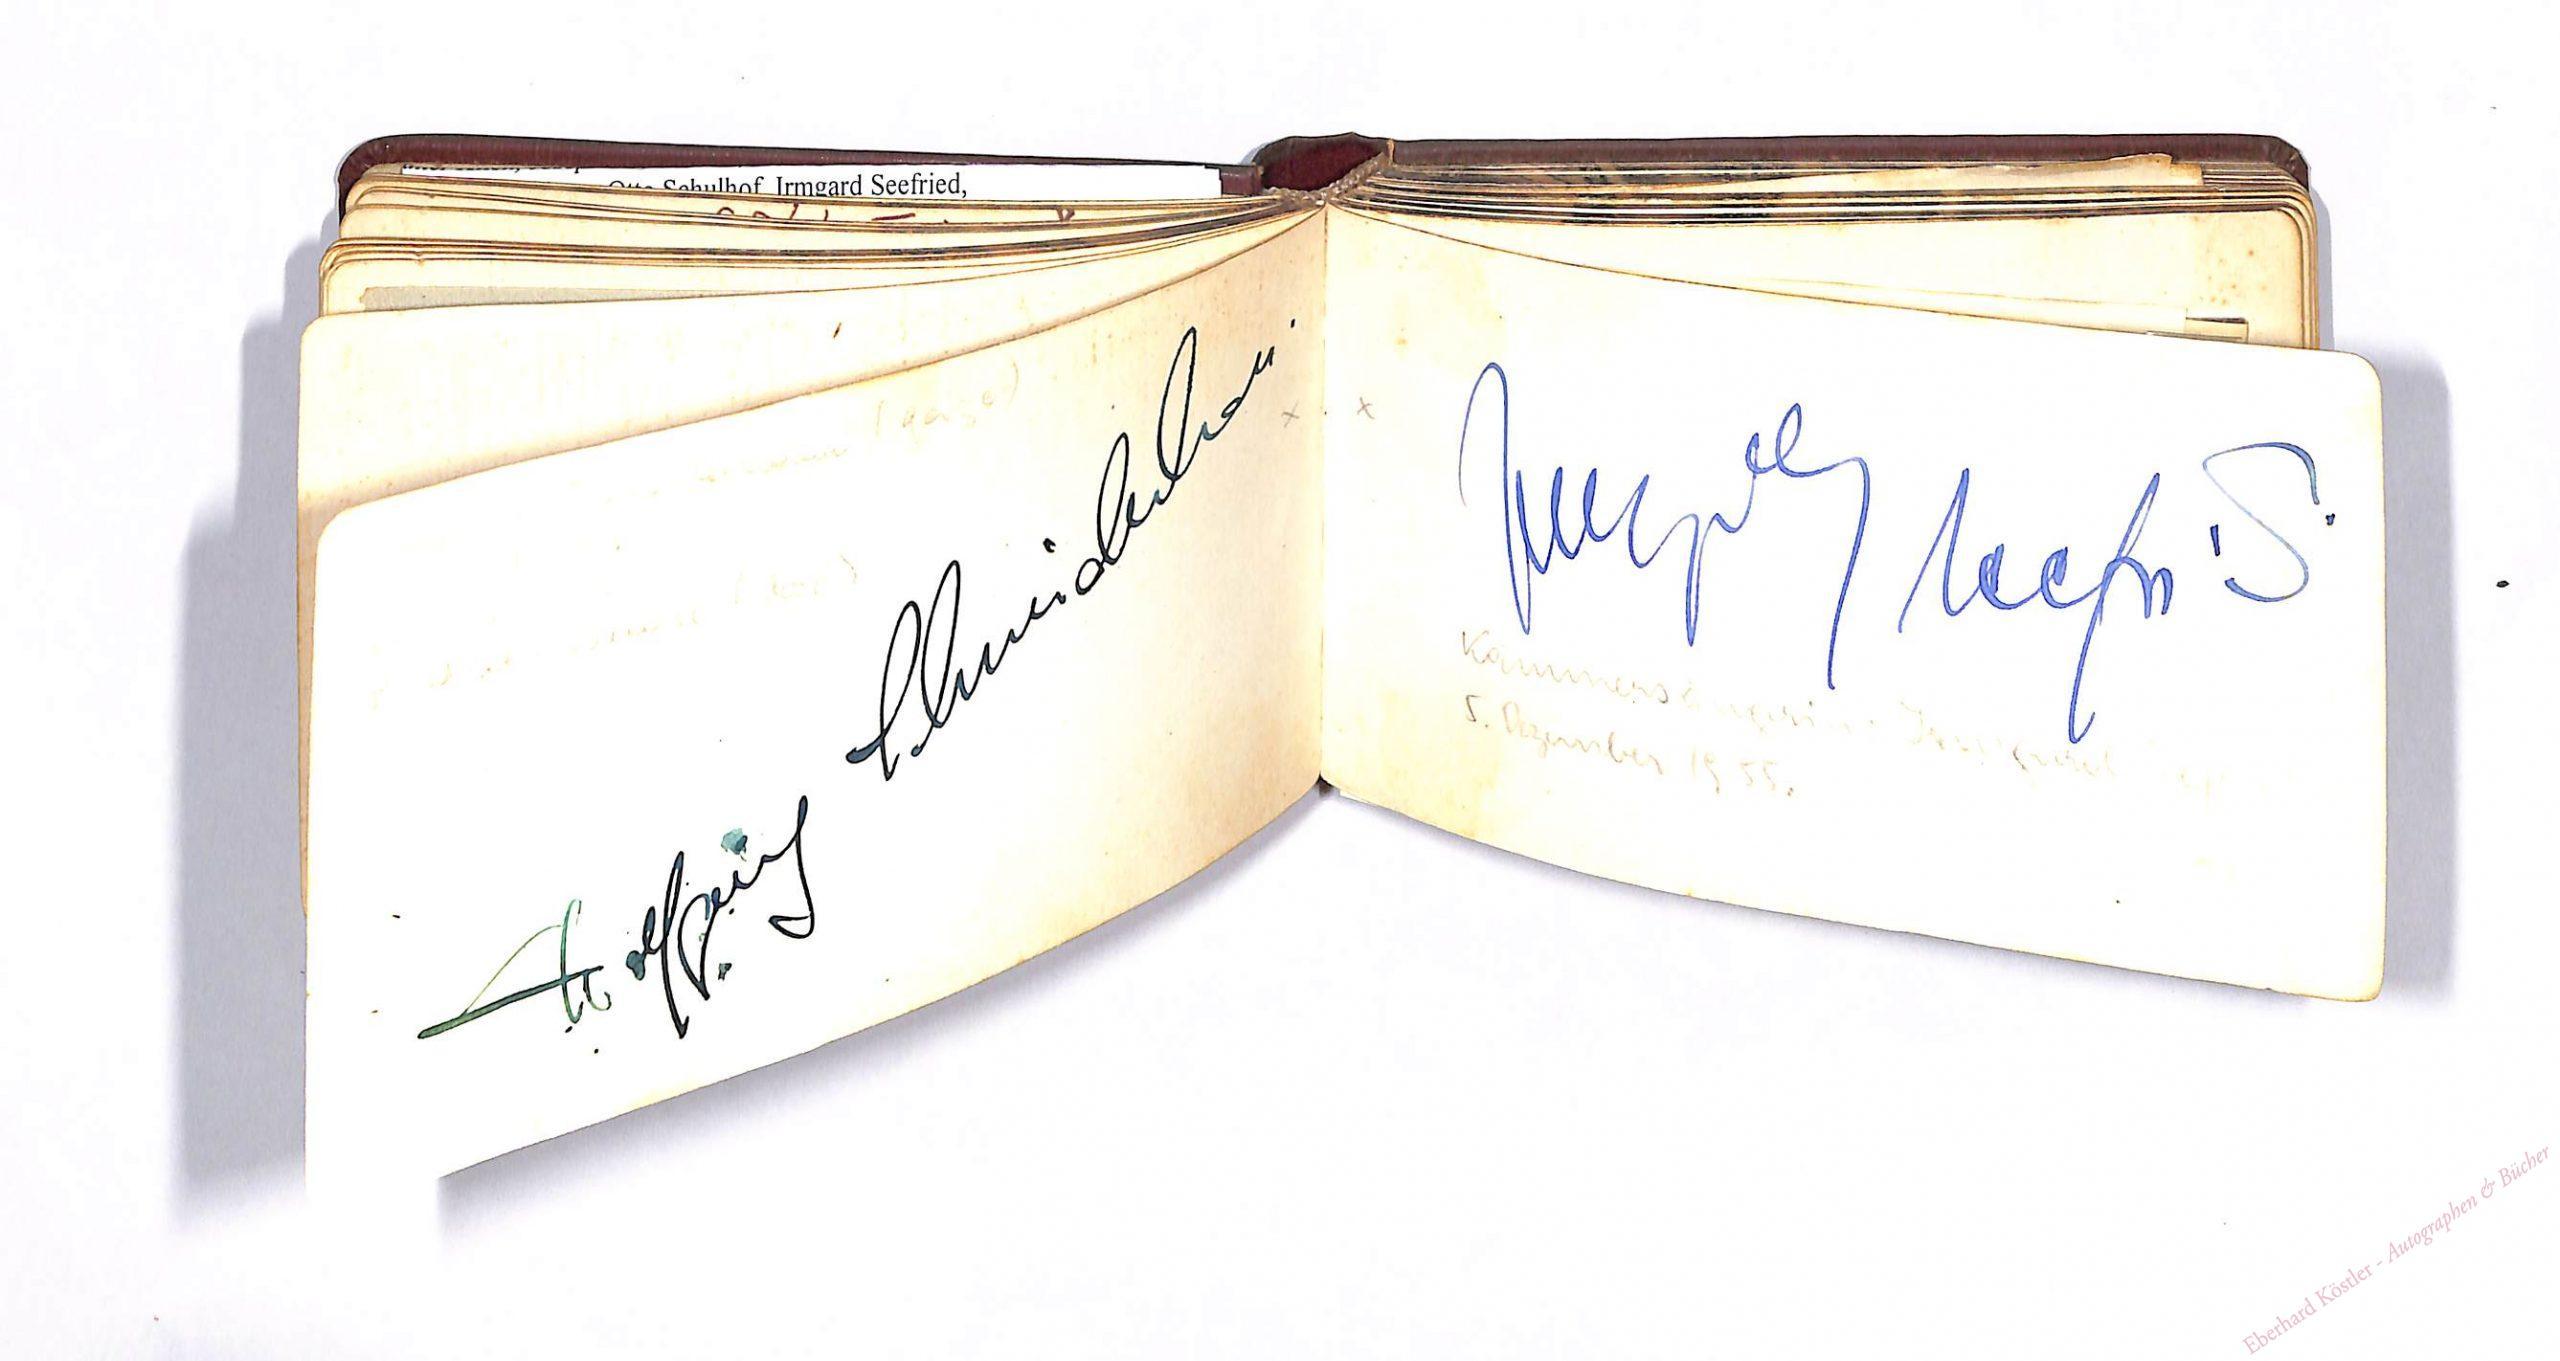 Otto Schulhof, Irmgard Seefried,
(geige)
Wolfgang Schneiderhan
x x
Irmgard Seefried
Kammersängerin Irmgard
5. Dezember 1955.
Eberhard Köstler - Autographen & Bücher